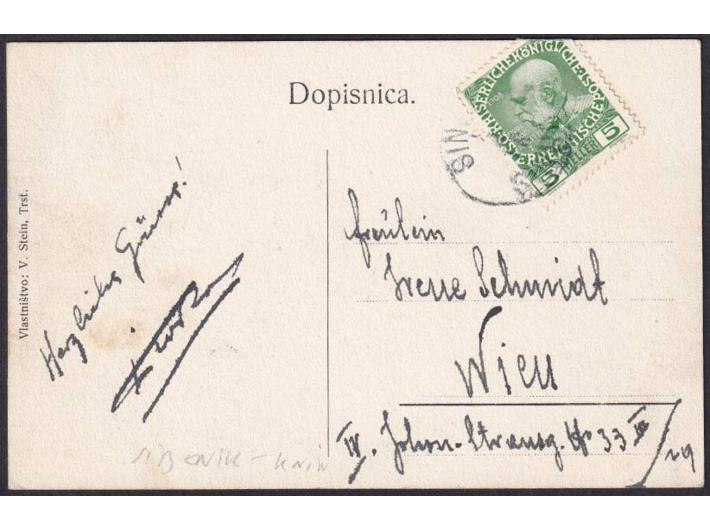 Dopisnica.
KAISERLICHE KÖNIGLICHE ÖSTERREICHISCHE POST
5 HELLER 5
Vlastništvo: V. Stein, Trst.
Herzliche Grüsse!
Fräulein
Irene Schmidt
Wien
IV. Johann-Straussg. No 33 III/19